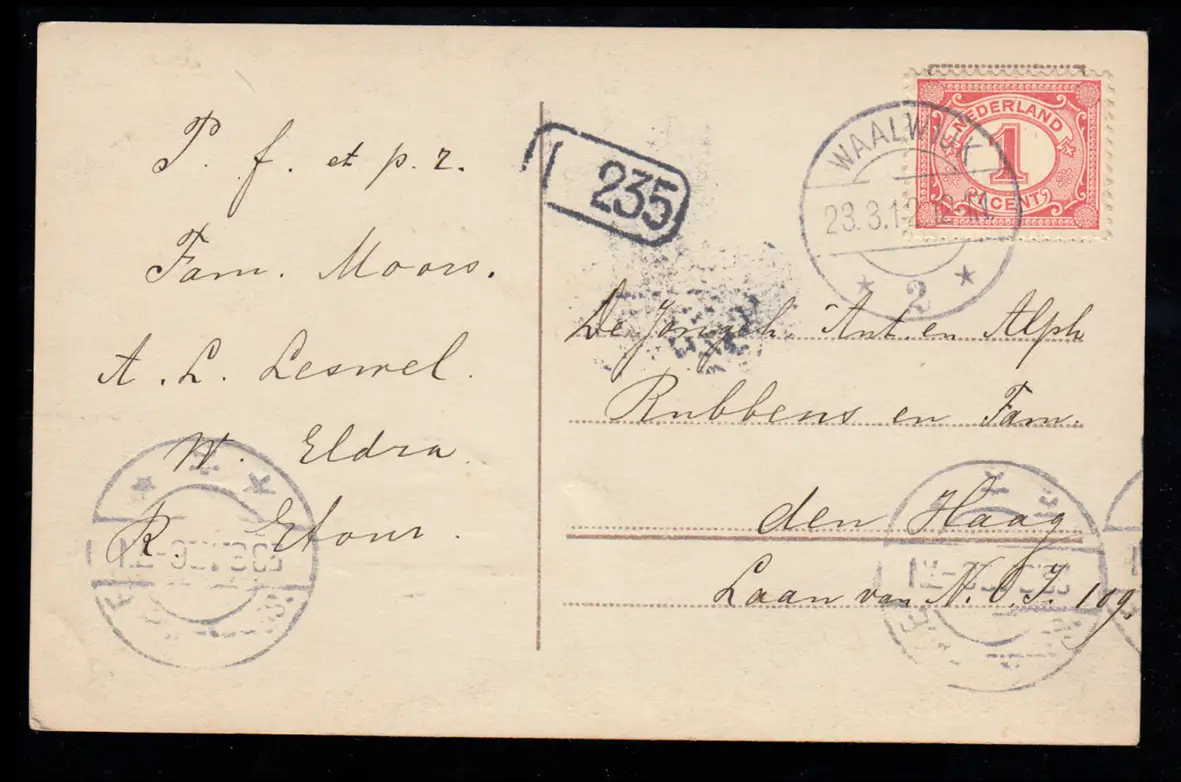 P. f. et p. r.
Fam. Moors.
A. L. Lesmel.
W. Eldra
R Etour.
235
NEDERLAND
1
CENT
WAALWIJK
23.3.1
2
De Jongeh. Ant. en Alph
Rubbens en Fam.
den Haag
Laan van N.O.I. 109